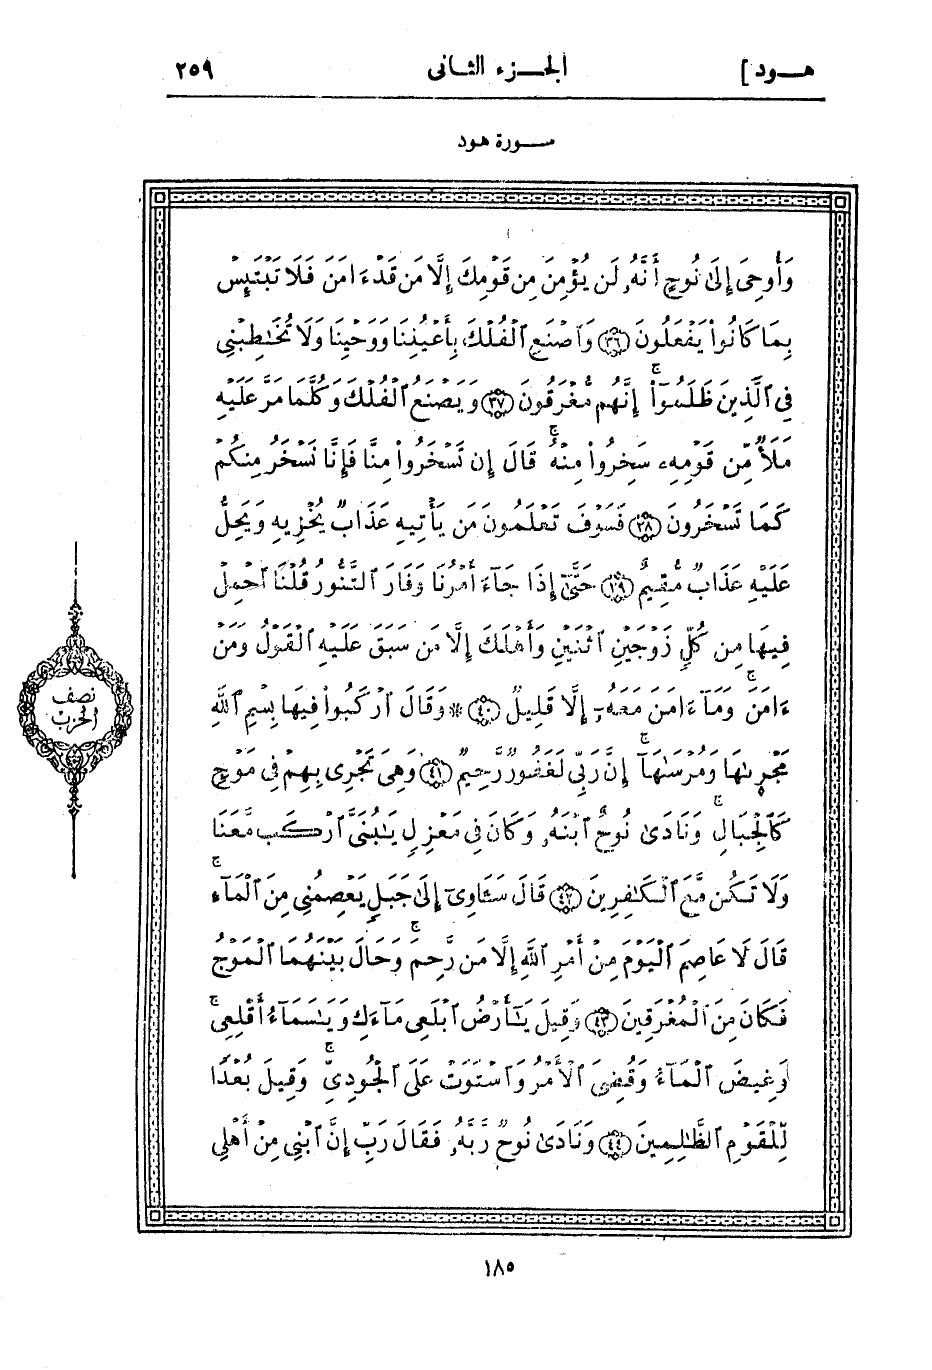 هـــود ]
الجـــزء الثـــانى
٢٥٩
ســـورة هـود
وَأُوحِىَ إِلَىٰ نُوحٍ أَنَّهُۥ لَن يُؤْمِنَ مِن قَوْمِكَ إِلَّا مَن قَدْ ءَامَنَ فَلَا تَبْتَئِسْ
بِمَا كَانُوا۟ يَفْعَلُونَ ﴿٣٦﴾ وَٱصْنَعِ ٱلْفُلْكَ بِأَعْيُنِنَا وَوَحْيِنَا وَلَا تُخَـٰطِبْنِى
فِى ٱلَّذِينَ ظَلَمُوٓا۟ ۚ إِنَّهُم مُّغْرَقُونَ ﴿٣٧﴾ وَيَصْنَعُ ٱلْفُلْكَ وَكُلَّمَا مَرَّ عَلَيْهِ
مَلَأٌ مِّن قَوْمِهِۦ سَخِرُوا۟ مِنْهُ ۚ قَالَ إِن تَسْخَرُوا۟ مِنَّا فَإِنَّا نَسْخَرُ مِنكُمْ
كَمَا تَسْخَرُونَ ﴿٣٨﴾ فَسَوْفَ تَعْلَمُونَ مَن يَأْتِيهِ عَذَابٌ يُخْزِيهِ وَيَحِلُّ
عَلَيْهِ عَذَابٌ مُّقِيمٌ ﴿٣٩﴾ حَتَّىٰٓ إِذَا جَآءَ أَمْرُنَا وَفَارَ ٱلتَّنُّورُ قُلْنَا ٱحْمِلْ
فِيهَا مِن كُلٍّ زَوْجَيْنِ ٱثْنَيْنِ وَأَهْلَكَ إِلَّا مَن سَبَقَ عَلَيْهِ ٱلْقَوْلُ وَمَنْ
ءَامَنَ ۚ وَمَآ ءَامَنَ مَعَهُۥٓ إِلَّا قَلِيلٌ ﴿٤٠﴾ * وَقَالَ ٱرْكَبُوا۟ فِيهَا بِسْمِ ٱللَّهِ
نصف
الحزب
مَجْر۪ىٰهَا وَمُرْسَىٰهَآ ۚ إِنَّ رَبِّى لَغَفُورٌ رَّحِيمٌ ﴿٤١﴾ وَهِىَ تَجْرِى بِهِمْ فِى مَوْجٍ
كَٱلْجِبَالِ ۚ وَنَادَىٰ نُوحٌ ٱبْنَهُۥ وَكَانَ فِى مَعْزِلٍ يَـٰبُنَىَّ ٱرْكَب مَّعَنَا
وَلَا تَكُن مَّعَ ٱلْكَـٰفِرِينَ ﴿٤٢﴾ قَالَ سَـَٔاوِىٓ إِلَىٰ جَبَلٍ يَعْصِمُنِى مِنَ ٱلْمَآءِ ۚ
قَالَ لَا عَاصِمَ ٱلْيَوْمَ مِنْ أَمْرِ ٱللَّهِ إِلَّا مَن رَّحِمَ ۚ وَحَالَ بَيْنَهُمَا ٱلْمَوْجُ
فَكَانَ مِنَ ٱلْمُغْرَقِينَ ﴿٤٣﴾ وَقِيلَ يَـٰٓأَرْضُ ٱبْلَعِى مَآءَكِ وَيَـٰسَمَآءُ أَقْلِعِى ۚ
وَغِيضَ ٱلْمَآءُ وَقُضِىَ ٱلْأَمْرُ وَٱسْتَوَتْ عَلَى ٱلْجُودِىِّ ۚ وَقِيلَ بُعْدًا
لِّلْقَوْمِ ٱلظَّـٰلِمِينَ ﴿٤٤﴾ وَنَادَىٰ نُوحٌ رَّبَّهُۥ فَقَالَ رَبِّ إِنَّ ٱبْنِى مِنْ أَهْلِى
١٨٥